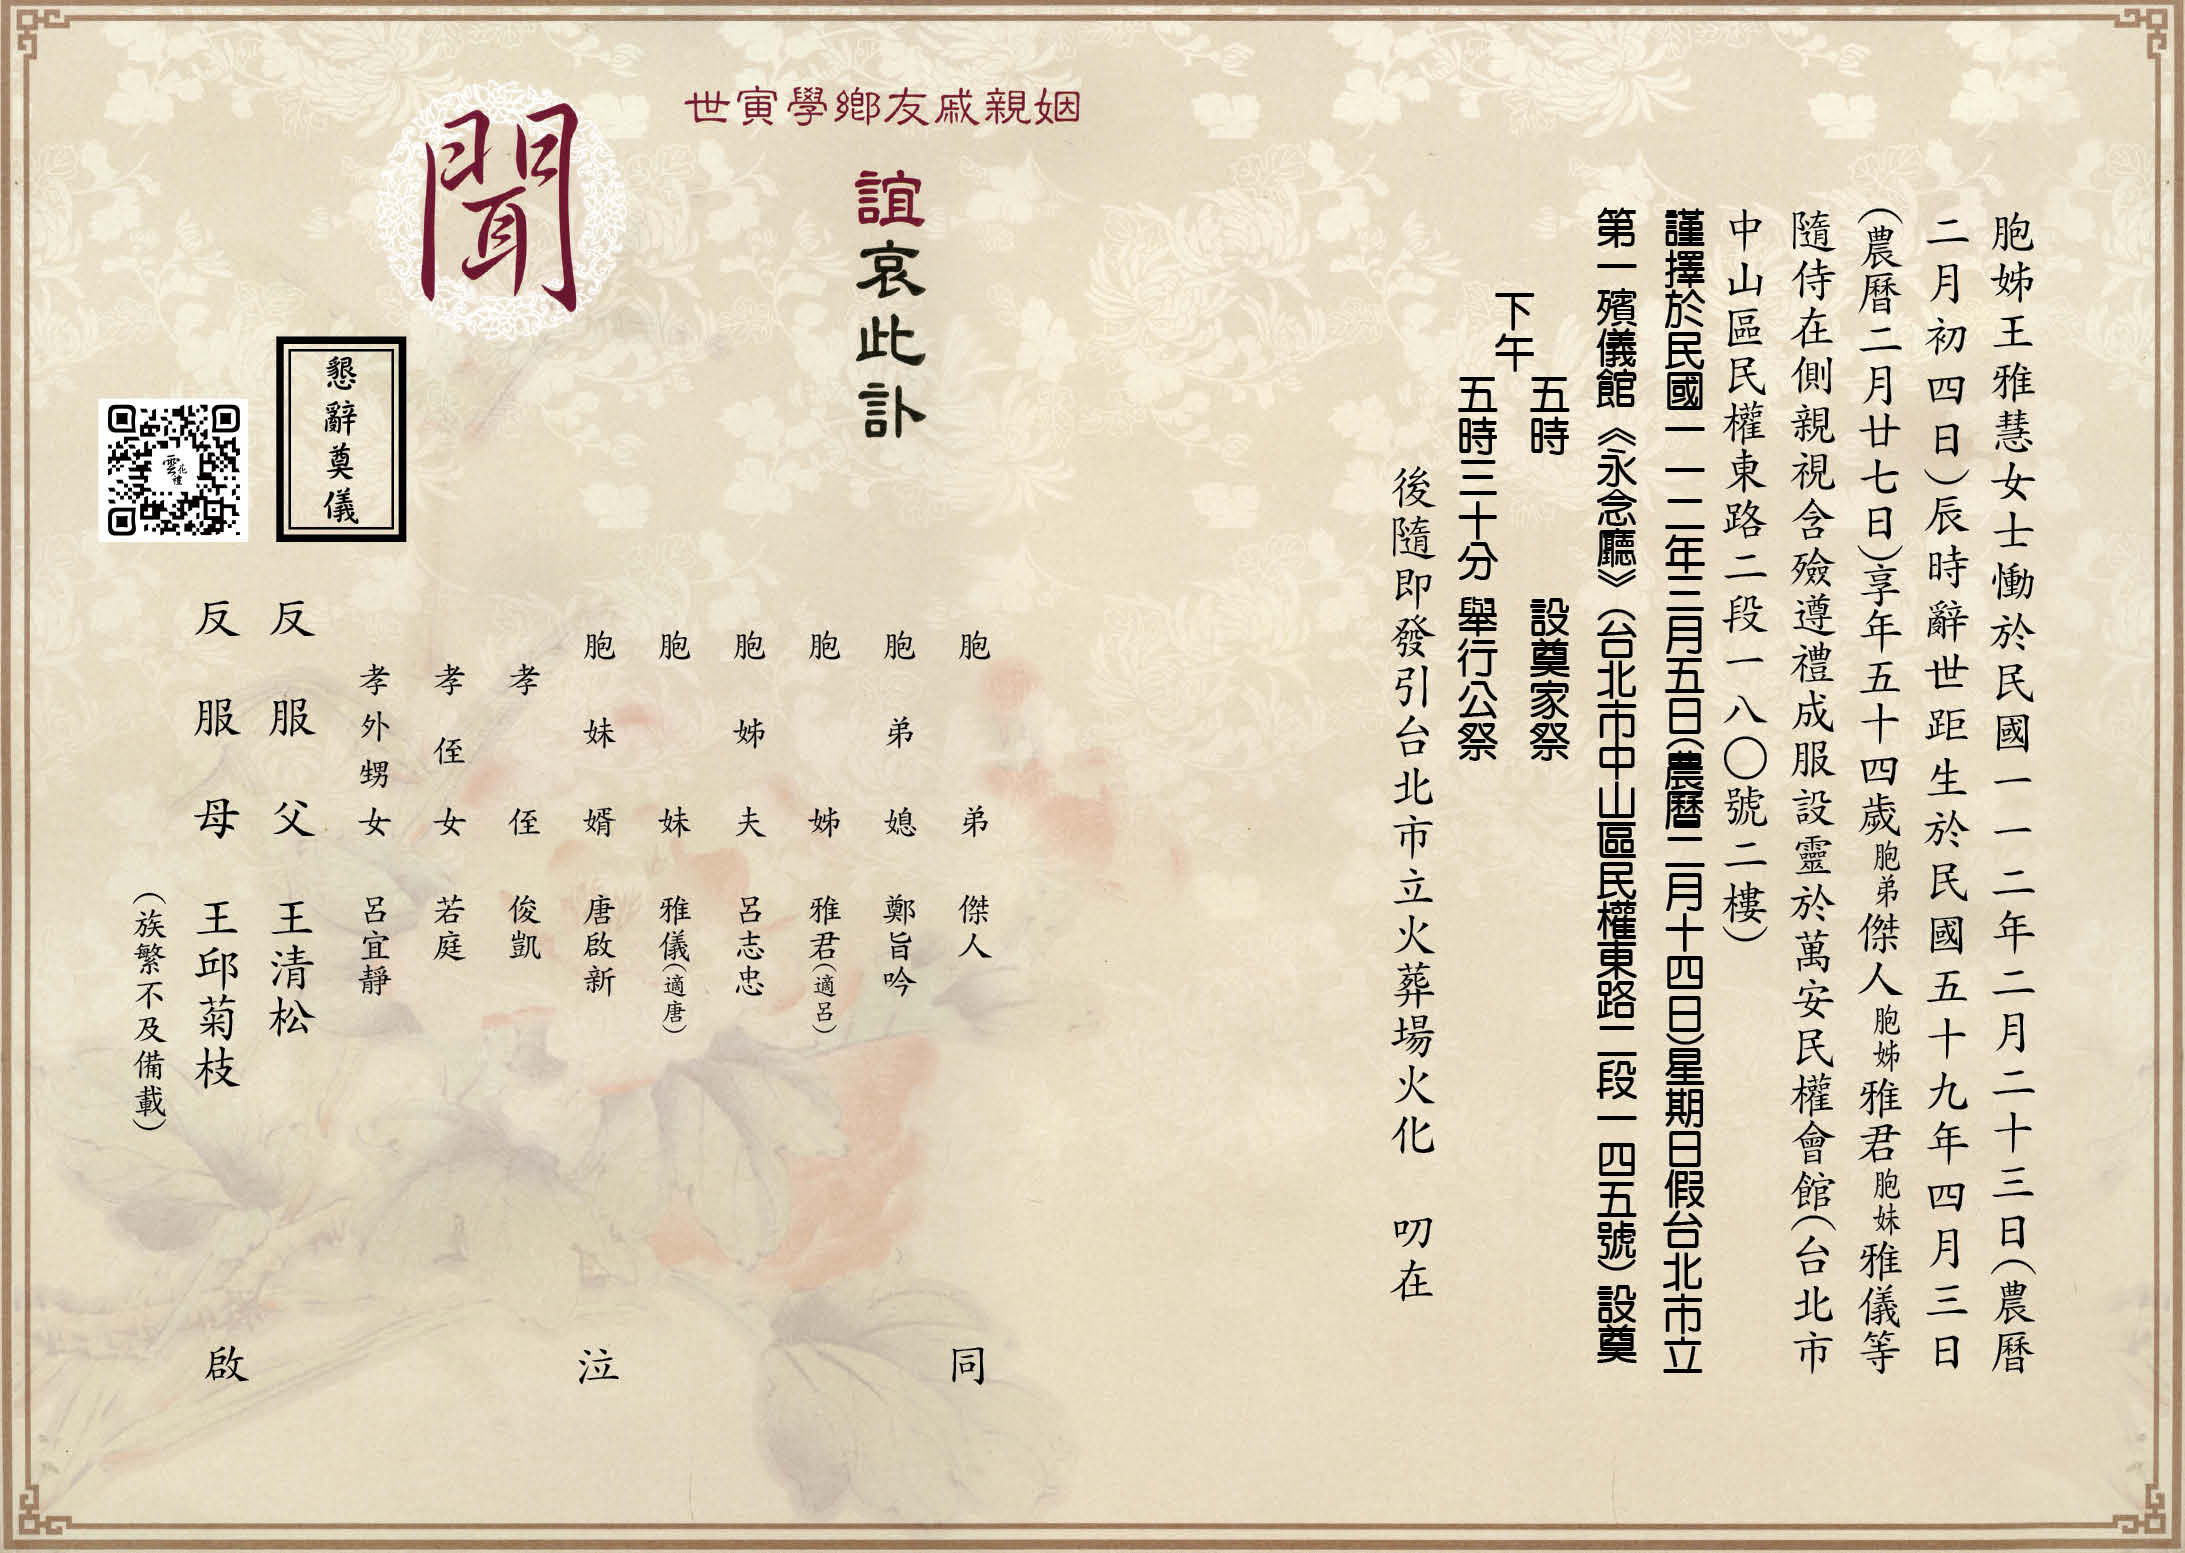 胞姊王雅慧女士慟於民國一一二年二月二十三日(農曆
二月初四日)辰時辭世距生於民國五十九年四月三日
(農曆二月廿七日)享年五十四歲胞弟傑人胞姊雅君胞妹雅儀等
隨侍在側親視含殮遵禮成服設靈於萬安民權會館(台北市
中山區民權東路二段一八〇號二樓)
謹擇於民國一一二年三月五日(農曆二月十四日)星期日假台北市立
第一殯儀館《永念廳》(台北市中山區民權東路二段一四五號)設奠
下午
五時 設奠家祭
五時三十分 舉行公祭
後隨即發引台北市立火葬場火化 叨在
姻親戚友鄉學寅世
誼哀此訃
聞
懇辭奠儀
雲禮
胞弟 傑人
胞弟媳 鄭旨吟
胞姊 雅君(適呂)
胞姊夫 呂志忠
胞妹 雅儀(適唐)
胞妹婿 唐啟新
孝侄 俊凱
孝侄女 若庭
孝外甥女 呂宜靜
反服父 王清松
反服母 王邱菊枝
(族繁不及備載)
同泣啟